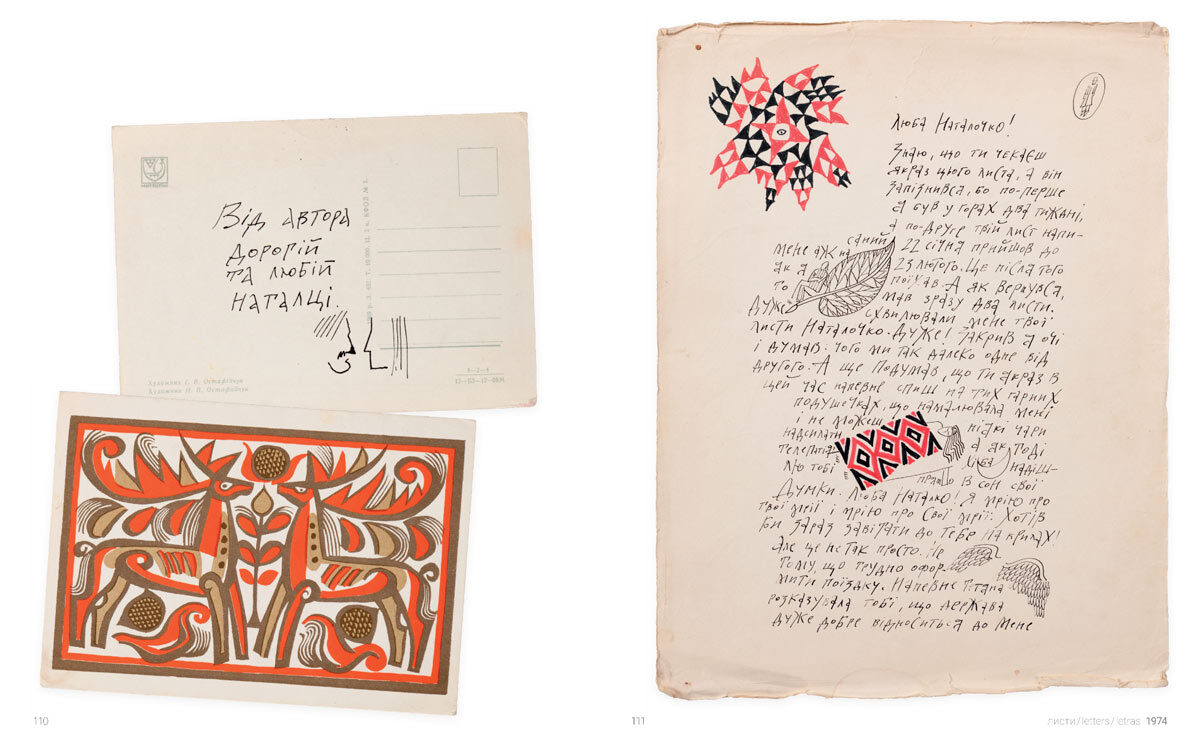 Від автора
дорогій
та любій
Наталці.
Художник І. В. Остафійчук
Художник Остафійчук
110
Люба Наталочко!
Знаю, що ти чекаєш
якраз цього листа, а він
запізнився, бо по-перше
я був у горах два тижні,
а по-друге твій лист напи-
саний 22 січня прийшов до
мене аж на 23 лютого. Ще після того
як я поїхав. А як вернувся,
то мав зразу два листи.
Дуже схвилювали мене твої
листи Наталочко. Дуже! Закрив я очі
і думав: чого ми так далеко одне від
другого. А ще подумав, що ти якраз в
цей час напевне спиш на тих гарних
подушечках, що намалювала мені
і не можеш ніякі чари
надсилати а я тоді
телепати надіш-
лю тобі прямо в сон свої
думки. Люба Наталко! Я мрію про
твої мрії і мрію про свої мрії. Хотів
би зараз завітати до тебе на крилах!
Але це не так просто. Не
тому, що трудно офор-
мити поїздку. Напевне Тетяна
розказувала тобі, що держава
дуже добре відноситься до мене
111
листи/letters/letras 1974